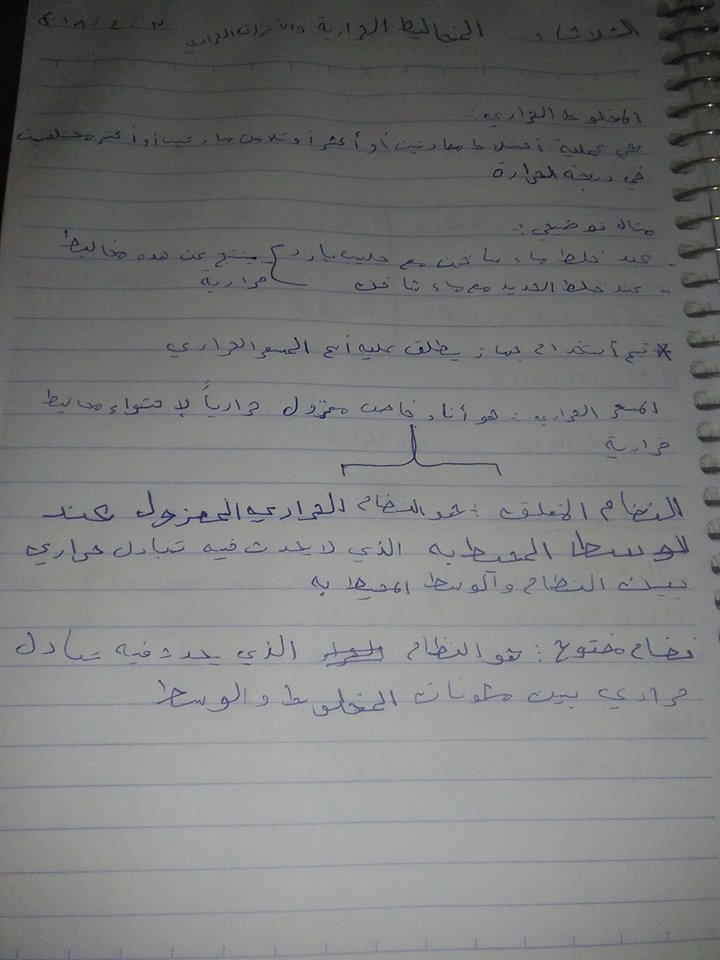 الثلاثاء المخاليط الحرارية والأتزان الحراري ٣/٤/٢٠١٨
المخلوط الحراري :
هي عملية أختلاط مادتين أو أكثر أو تلامس مادتين أو أكثر مختلفتين
في درجة الحرارة
مثال توضيحي :
- عند خلط ماء ساخن مع حليب بارد ينتج عن هذه مخاليط
- عند خلط الحديد مع ماء ساخن حرارية
* تم أستخدام جهاز يطلق عليه أسم المسعر الحراري
المسعر الحراري : هو أناء خاص معزول حرارياً لإحتواء مخاليط
حرارية
النظام المغلق : هو النظام الحراري المعزول عند
الوسط المحيط به الذي لا يحدث فيه تبادل حراري
بين النظام والوسط المحيط به
نضام مفتوح : هو النظام الذي يحدث فيه تبادل
حراري بين مكونات المخلوط والوسط